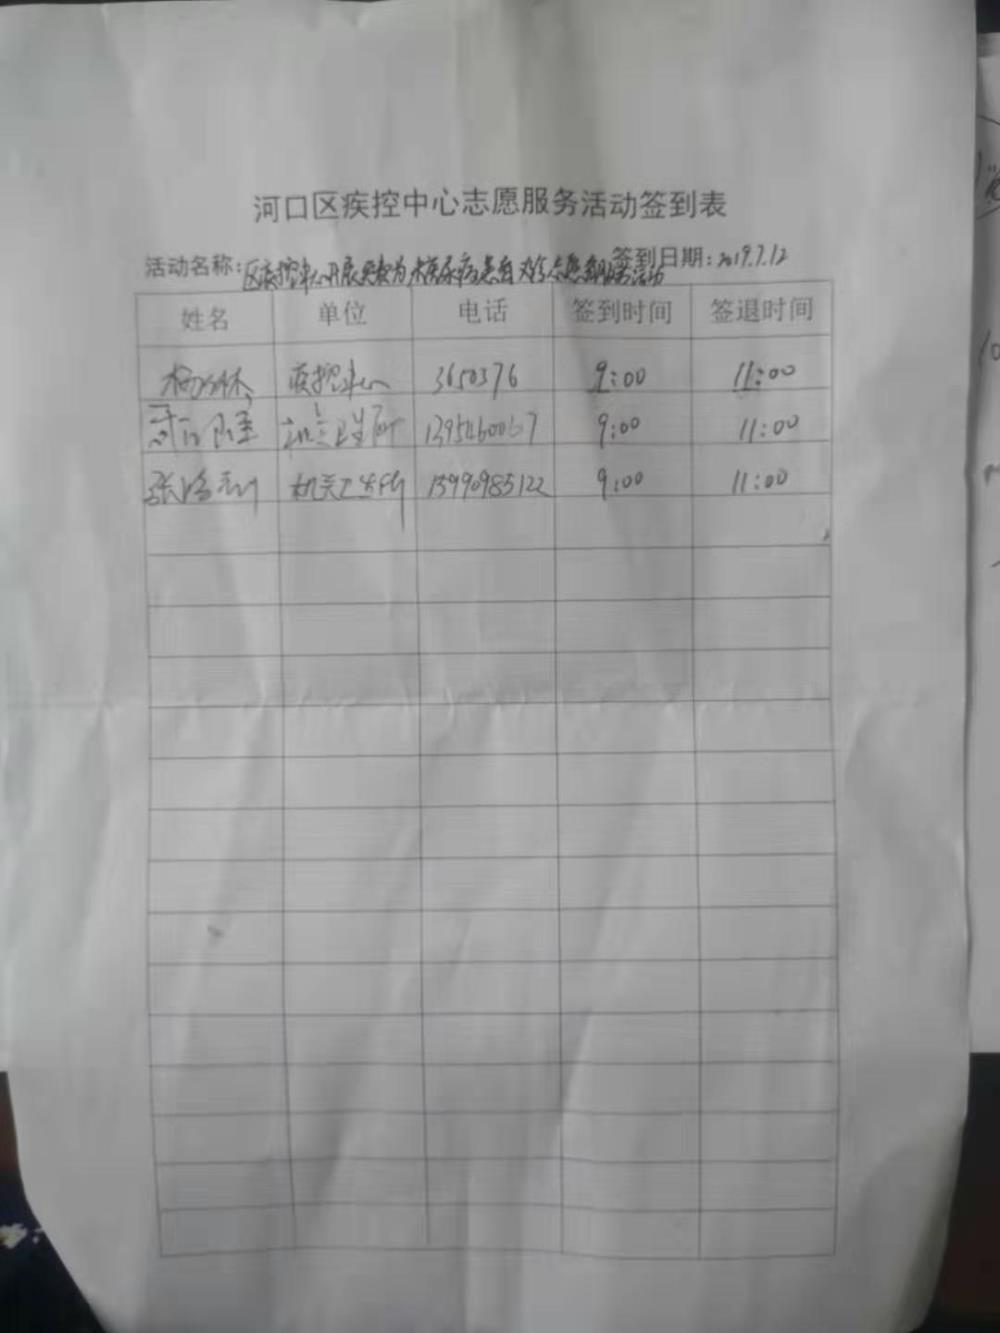 河口区疾控中心志愿服务活动签到表
活动名称:区疾控中心开展 为 糖尿病患者 志愿服务活动 签到日期:2019.7.12
姓名 单位 电话 签到时间 签退时间
疾控中心 3650376 9:00 11:00
机关卫生所 9:00 11:00
张 机关卫生所 15990985122 9:00 11:00